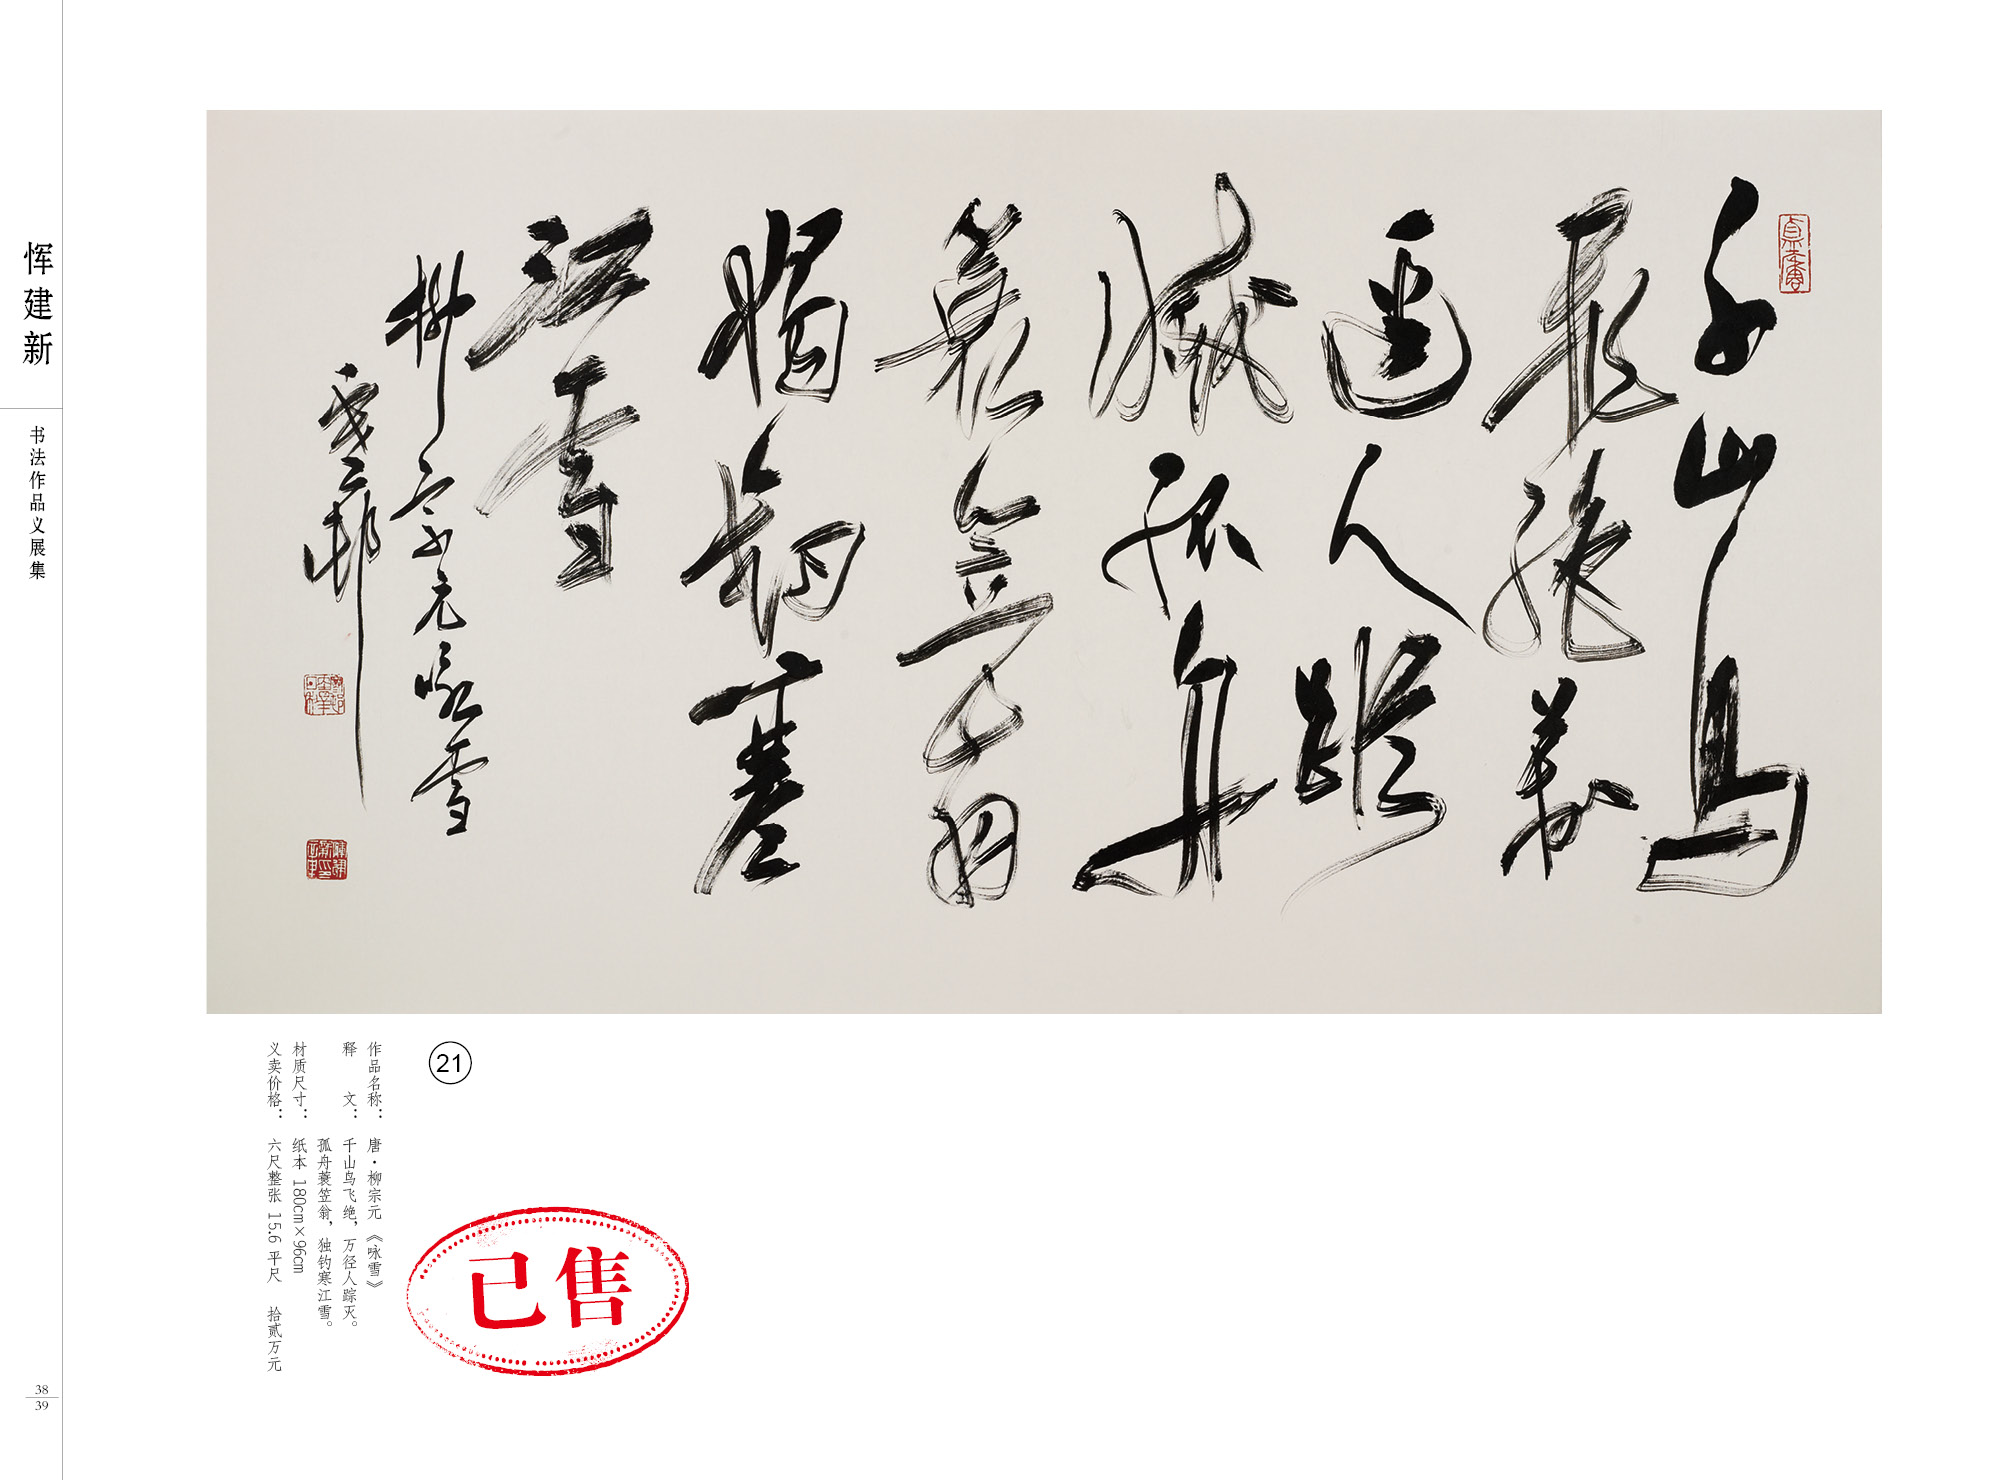 恽建新
书法作品义展集
千山鸟
飞绝万
径人踪
灭孤舟
蓑笠翁
独钓寒
江雪
柳宗元咏雪
21
作品名称： 唐·柳宗元《咏雪》
释 文： 千山鸟飞绝，万径人踪灭。
孤舟蓑笠翁，独钓寒江雪。
材质尺寸： 纸本 180cm×96cm
义卖价格： 六尺整张 15.6 平尺 拾贰万元
已售
38
39